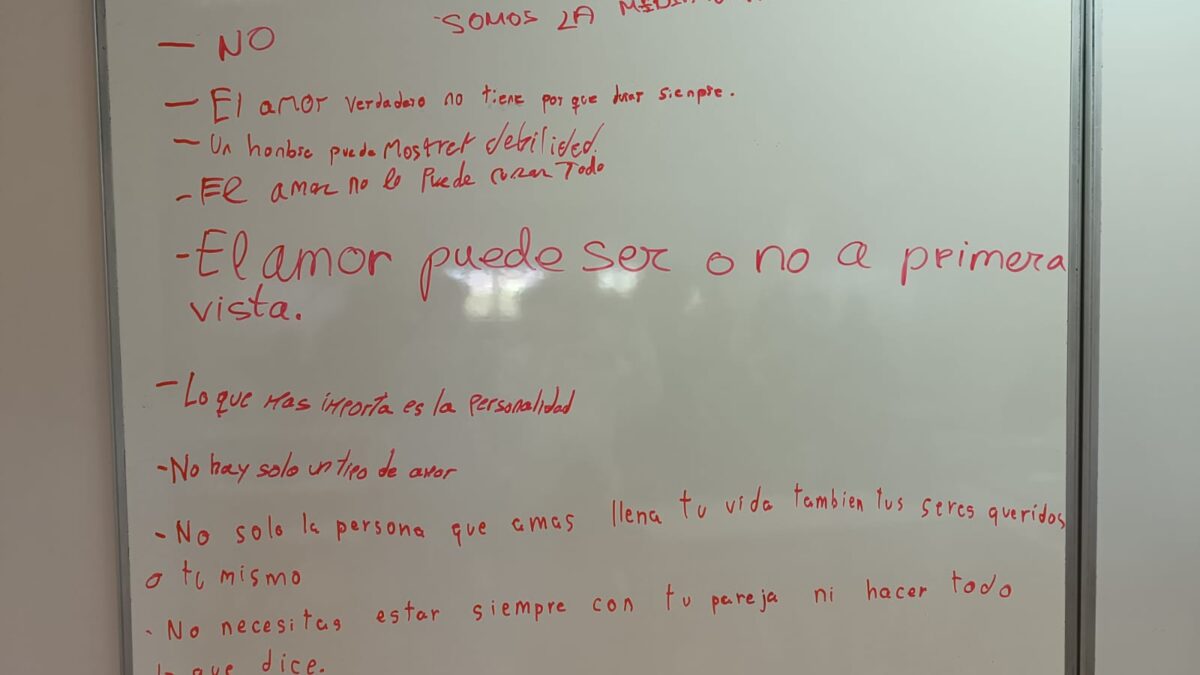 -SOMOS LA
— NO
— El amor verdadero no tiene por que durar siempre.
— Un hombre puede Mostrar debilidad.
- El amor no lo Puede curar Todo
- El amor puede ser o no a primera
vista.
- Lo que mas importa es la personalidad
- No hay solo un tipo de amor
- No solo la persona que amas llena tu vida tambien tus seres queridos
o tu mismo
- No necesitas estar siempre con tu pareja ni hacer todo
lo que dice.